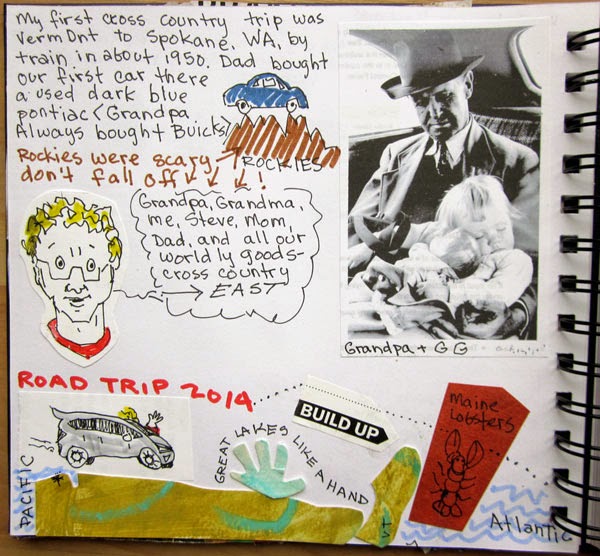 My first cross country trip was
VermOnt to Spokane, WA, by
train in about 1950. Dad bought
our first car there
a used dark blue
pontiac <Grandpa
Always bought Buicks>
Rockies were scary → ROCKIES
don't fall off ↓ ↓ ↓!
Grandpa, Grandma,
me, Steve, Mom,
Dad, and all our
worldly goods-
cross country
→ EAST
Grandpa + GG
ROAD TRIP 2014
BUILD UP
Maine
Lobsters
GREAT LAKES LIKE A HAND
PACIFIC
VT
Atlantic